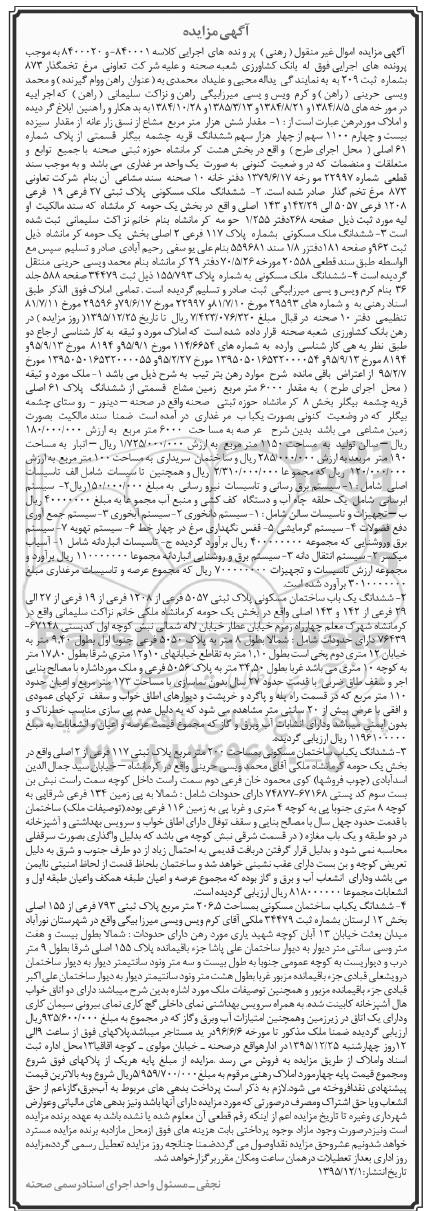 آگهی مزایده
آگهی مزایده اموال غیر منقول ( رهنی ) پرونده های اجرایی کلاسه ۸۴۰۰۰۱- و ۸۴۰۰۰۲۰ به موجب
پرونده های اجرایی فوق له بانک کشاورزی شعبه صحنه و علیه شرکت تعاونی مرغ تخمگذار ۸۷۳
بشماره ثبت ۲۰۹ به به نمایندگی یداله محبی و علیداد محمدی به (عنوان راهن و وام گیرنده) و محمد
ویسی حرینی ( راهن ) و کرم ویس و یسی میرزابیگی راهن و نزاکت سلیمانی ( راهن ) که اجراییه
در مورخه های ۱۳۸۴/۸/۵ و ۱۳۸۴/۸/۲۱ و ۱۳۸۵/۳/۱۳ و ۱۳۸۴/۱۰/۲۸ به بدهکار و راهنین ابلاغ گردیده
و املاک موردرهن عبارت است از : ۱- مقدار شش هزار متر مربع مشاع از نسق زارعانه از مقدار سیزده
بیست و چهارم ۱۱۰۰ سهم از چهار هزار سهم ششدانگ قریه چشمه بیگلر قسمتی از پلاک شماره
۶۱ اصلی ( محل اجرای طرح ) واقع در بخش هشت کرمانشاه حوزه ثبتی صحنه با جمیع توابع و
متعلقات و منضمات که در وضعیت کنونی به صورت یک واحد مرغداری می باشد و به موجب سند
قطعی شماره ۲۲۹۹۷ مورخه ۱۳۷۹/۶/۱۷ دفتر خانه ۱۰ صحنه سند مشاعی آن بنام شرکت تعاونی
۸۷۳ مرغ تخم گذار صادر شده است. ۲- ششدانگ ملک مسکونی پلاک ثبتی ۲۷ فرعی ۱۹ فرعی
۱۲۰۸ فرعی ۵۰۵۷ الی ۱۴۲/۲۹ و ۱۴۳ اصلی واقع در بخش یک حومه کرمانشاه که سند مالکیت او
لیه مورد ثبت ذیل صفحه ۲۶۸ دفتر ۱/۲۵۵ حومه کرمانشاه بنام خانم نزاکت سلیمانی ثبت شده
است ۳- ششدانگ ملک مسکونی بشماره پلاک ۱۱۷ فرعی ۲ اصلی بخش یک حومه کرمانشاه ذیل
ثبت ۹۶۲ و صفحه ۱۸۱ دفتر ۱/۸ سند ۵۵۹۶۸۱ بنام علی یوسفی رحیم آبادی صادر و تسلیم سپس مع
الواسطه طبق سند قطعی ۲۰۵۵۸ مورخه ۷۰/۵/۲۶ دفتر ۲۹ کرمانشاه بنام محمد ویسی حرینی منتقل
گردیده است ۴- ششدانگ ملک مسکونی به شماره پلاک ۱۵۵/۷۹۳ ذیل ثبت ۳۴۴۷۹ صفحه ۵۸۸ جلد
۳۶ بنام کرم ویس و یسی میرزابیگی ثبت صادر و تسلیم گردیده است . تمامی املاک فوق الذکر طبق
اسناد رهنی به و شماره های ۲۹۵۹۳ مورخ ۸۱/۷/۱۰ و ۲۲۹۹۷ مورخ ۷۹/۶/۱۷ و ۲۹۵۹۶ مورخ ۸۱/۷/۱۱
تنظیمی دفتر ۱۰ صحنه در قبال مبلغ ۷/۴۲۳/۰۷۶/۳۲۰ ریال تا تاریخ ۱۳۹۵/۱۲/۲۵ (روز مزایده) در
رهن بانک کشاورزی شعبه صحنه قرار داده شده است که املاک مورد وثیقه به کارشناسی ارجاع دو
طبق نظریه هی کارشناسی وارده به شماره های ۱۱۴/۶۶۵۴ مورخ ۹۵/۹/۱ و ۸۱۹۴ مورخ ۹۵/۹/۱۳ و
۸۱۹۴ مورخ ۹۵/۹/۱۳ و ۱۳۹۵۰۵۰۱۶۵۳۲۰۰۰۰۵۴ مورخ ۹۵/۲/۲۷ و ۱۳۹۵۰۵۰۱۶۵۳۲۰۰۰۰۵۵ مورخ
۹۵/۲/۷ از اعتراض باقی مانده شرح موارد رهن بترتیب به شرح ذیل می باشد ۱- ملک مورد وثیقه
( محل اجرای طرح ) به مقدار ۶۰۰۰ متر مربع زمین مشاع قسمتی از ششدانگ پلاک ۶۱ اصلی
قریه چشمه بیگلر بخش ۸ کرمانشاه حوزه ثبتی صحنه واقع در صحنه – دینور – روستای چشمه
بیگلر که در وضعیت کنونی بصورت یکباب مرغداری در آمده است ضمنا سند مالکیت بصورت
زمین مشاعی می باشد بدین شرح عرصه به مساحت ۶۰۰۰ متر مربع به ارزش ۱۸۰/۰۰۰/۰۰۰
ریال – سالن تولید به مساحت ۱۱۵۰ متر مربع به ارزش ۱/۷۲۵/۰۰۰/۰۰۰ ریال – انبار به مساحت
۱۹۰ متر مربع به ارزش ۲۸۵/۰۰۰/۰۰۰ ریال و ساختمان سریداری به مساحت ۱۰۰ متر مربع به ارزش
۱۲۰/۰۰۰/۰۰۰ ریال که مجموعا ۲/۳۱۰/۰۰۰/۰۰۰ ریال و همچنین تاسیسات شامل الف تاسیسات
اصلی شامل ۱- سیستم برق رسانی و تاسیسات نیرو رسانی به مبلغ ۱۵۰/۰۰۰/۰۰۰ ریال ۲- سیستم
ابرسانی شامل یک حلقه چاه آب و دستگاه کف کشی و منبع آب مجموعا به مبلغ ۴۰۰۰۰۰۰۰ ریال
ب – تجهیزات و تاسیسات سالن شامل : ۱- سیستم دانخوری ۲- سیستم آبخوری ۳- سیستم جمع آوری
دفع فضولات ۴- سیستم گرمایشی ۵- قفس نگهداری مرغ در چهار خط ۶- سیستم تهویه ۷- سیستم
برق وروشنایی که مجموعه ۴۰۰۰۰۰۰۰۰ ریال برآورد گردیده ج- تاسیسات انبار دانه شامل ۱- آسیاب
میکسر ۲- سیستم انتقال دانه ۳- سیستم برق و روشنایی انبار دانه مجموعا ۱۱۰۰۰۰۰۰۰ ریال برآورد و
مجموعه ارزش تاسیسات و تجهیزات ۷۰۰۰۰۰۰۰۰ ریال که مجموع عرصه و تاسیسات مرغداری مبلغ
۳۰۱۰۰۰۰۰۰۰ برآورد شده است.
۲- ششدانگ یک باب ساختمان مسکونی پلاک ثبتی ۵۰۵۷ فرعی از ۱۲۰۸ فرعی از ۱۹ فرعی از ۲۷ الی
۲۹ فرعی از ۱۴۲ و ۱۴۳ اصلی واقع در بخش یک حومه کرمانشاه ملکی خانم نزاکت سلیمانی واقع در
کرمانشاه شهرک معلم چهارراه زمزم خیابان عطار خیابان لاله شمالی نبش کوچه اول کدپستی ۶۷۱۴۸-
۷۶۴۳۹ دارای حدودات شامل : شمالا بطول ۱۰/۸۰ متر به پلاک ۵۰۵۰ فرعی جنوبا اول بطول ۹/۴۰ متر به
خیابان ۱۲ متری دوم پخی است بطول ۱/۱۰ متر به تقاطع خیابانهای ۱۰ و ۱۲ متری شرقا بطول ۱۷/۸۰ متر
به کوچه ۱۰ متری می باشد غربا بطول ۳۴/۵۰ متر به پلاک ۵۰۵۶ فرعی و ملک مورداشاره با مصالح بنایی
آجر و سقف طاق ضربی با قدمت حدود ۲۷ سال بدون نماسازی با مساحت ۱۷۳ متر مربع و اعیان حدود
۱۱۰ متر مربع که در قسمت راه پله و پاگرد و خرپشت و دیوارهای اطاق خواب و سقف ترکهای عمودی
و افقی با عرض بیش از ۲۰ سانتی متر مشاهده می شود که به دلیل عدم پی سازی مناسب خطرناک و
بدون ایمنی میباشد ودارای انشعابات آب وبرق و گاز که مجموع قیمت عرصه و اعیان و انشعابات به مبلغ
۱۱۹۶۱۰۰۰۰۰ ریال ارزیابی گردیده.
۳- ششدانگ یکباب ساختمان مسکونی بمساحت ۲۰۰ متر مربع پلاک ثبتی ۱۱۷ فرعی از ۲ اصلی واقع در
بخش یک حومه کرمانشاه ملکی آقای محمد ویسی حرینی واقع در کرمانشاه – خیابان سید جمال الدین
اسدآبادی (چوب فروشها) کوی محمود خان فرعی دوم سمت راست داخل کوچه سمت راست نبش بن
بست سوم کد پستی ۶۷۱۶۸-۷۴۸۷۷ دارای حدودات شامل : شمالا به پی زمین ۱۳۴ فرعی شرقابی به
کوچه ۸ متری جنوبا پی به کوچه ۴ متری و غربا پی به زمین ۱۱۶ فرعی بوده (توصیفات ملک) ساختمان
با قدمت حدود چهل سال با مصالح بنایی و سقف توفال دارای اطاق خواب و سرویس بهداشتی و آشپزخانه
در دو طبقه و یک باب مغازه ( در قسمت شرقی نبش کوچه می باشد که بدلیل واگذاری بصورت سرقفلی
محاسبه نمی شود و بدلیل قرار گرفتن دریافت قدیمی به احتمال زیاد از دو طرف جنوب و شرق به دلیل
تعریض کوچه و بن بست دارای عقب نشینی خواهد شد و ساختمان بلحاظ قدمت از لحاظ امنیتی ناایمن
می باشد ودارای انشعاب آب و برق و گاز بوده که مجموع عرصه و اعیان طبقه همکف واعیان طبقه اول و
انشعابات مجموعا ۸۱۸۰۰۰۰۰۰ ریال ارزیابی گردیده است.
۴- ششدانگ یکباب ساختمان مسکونی بمساحت ۲۰۶/۵ متر مربع پلاک ثبتی ۷۹۳ فرعی از ۱۵۵ اصلی
بخش ۱۲ لرستان بشماره ثبت ۳۴۴۷۹ ملکی آقای کرم ویس ویسی میرزا بیگی واقع در شهرستان نورآباد
میدان بعثت خیابان ۱۳ آبان کوچه شهید یاری مورد رهن دارای حدودات : شمالا بطول بیست و هفت
متر وسی سانتی متر دیوار به دیوار ساختمان علی پاشا جزء باقیمانده پلاک ۱۵۵ اصلی شرقا بطول ۹ متر
درب و دیواریست به کوچه عمومی جنوبا به طول بیست و سه متر ونود سانتیمتر دیوار به دیوار ساختمان
درویشعلی قبادی جزء باقیمانده مزبور غربا بطول هشت متر ونود سانتیمتر دیوار به دیوار ساختمان علی اکبر
قبادی جزء باقیمانده مزبور و همچنین توصیفات ملک مورد اشاره بدین شرح میباشد: دارای دو اتاق خواب
هال آشپزخانه کابینت شده به همراه سرویس بهداشتی نمای داخلی گچ کاری نمای بیرونی سیمان کاری
ودارای یک اتاق در زیرزمین وهمچنین امتیازات آب وبرق وگاز که در مجموع به مبلغ ۹۳۵/۶۰۰/۰۰۰ ریال
ارزیابی گردیده ضمنا ملک مذکور تا مورخه ۹۶/۶/۶ در ید مستاجر میباشد. پلاکهای فوق از ساعت ۹ الی
۱۲ روز چهارشنبه ۱۳۹۵/۱۲/۲۵ در ادارهواقع درصحنه - خیابان مولوی – کوچه اقاقیا ۱۳ محل اداره ثبت
اسناد واملاک از طریق مزایده به فروش می رسد .مزایده از مبلغ پایه هریک از پلاکهای فوق شروع
ومجموع قیمت پایه چهارمورد املاک رهنی مرقوم به مبلغ ۵/۹۵۹/۷۰۰/۰۰۰ ریال شروع وبه بالاترین قیمت
پیشنهادی نقدافروخته می شود.لازم به ذکر است پرداخت بدهی های مربوط به آب،برق،گازاعم از حق
انشعاب ویا حق اشتراک ومصرف درصورتی که مورد مزایده دارای آنها باشد ونیز بدهی های مالیاتی وعوارض
شهرداری وغیره تا تاریخ مزایده اعم از اینکه رقم قطعی آن معلوم شده یا نشده باشد به عهده برنده مزایده
است ونیزدرصورت وجود مازاد ،وجوه پرداختی بابت هزینه های فوق ازمحل مازادبه برنده مزایده مسترد
خواهد شدونیم عشروحق مزایده نقداوصول می گرددضمنا چنانچه روز مزایده تعطیل رسمی گردد،مزایده
روز اداری بعداز تعطیلات درهمان ساعت ومکان مقرربرگزارخواهد شد.
تاریخ انتشار: ۱۳۹۵/۱۲/۱
نجفی – مسئول واحد اجرای اسنادرسمی صحنه